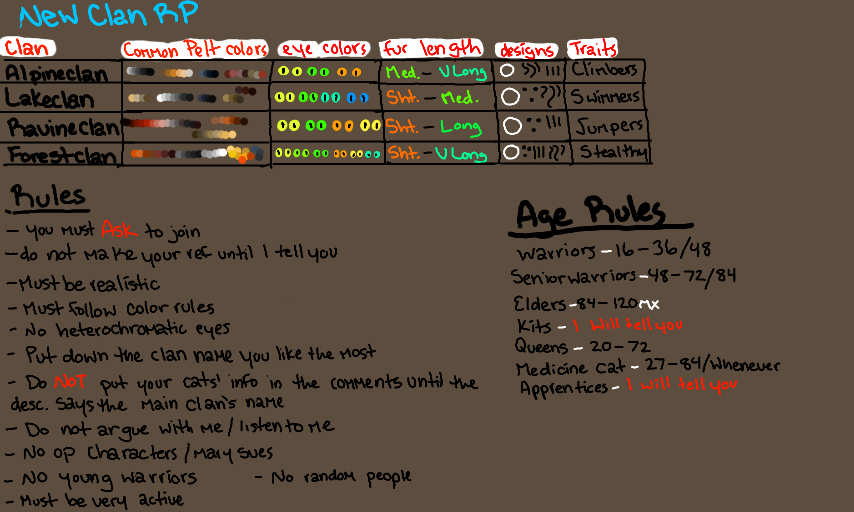 New Clan RP
Clan Common Pelt colors eye colors fur length designs Traits
Alpineclan Med. - VLong Climbers
Lakeclan Sht. - Med. Swimmers
Ravineclan Sht. - Long Jumpers
Forestclan Sht. - VLong Stealthy
Rules
- you must Ask to join
- do not make your ref until I tell you
- Must be realistic
- Must follow color rules
- No heterochromatic eyes
- Put down the clan name you like the most
- Do NOT put your cats' info in the comments until the
desc. says the main clan's name
- Do not argue with me / listen to me
- No OP characters / Mary sues
- NO young warriors - No random people
- Must be very active
Age Rules
Warriors - 16 - 36/48
Senior warriors - 48 - 72/84
Elders - 84 - 120 mx
Kits - I will tell you
Queens - 20 - 72
Medicine cat - 27 - 84/Whenever
Apprentices - I will tell you